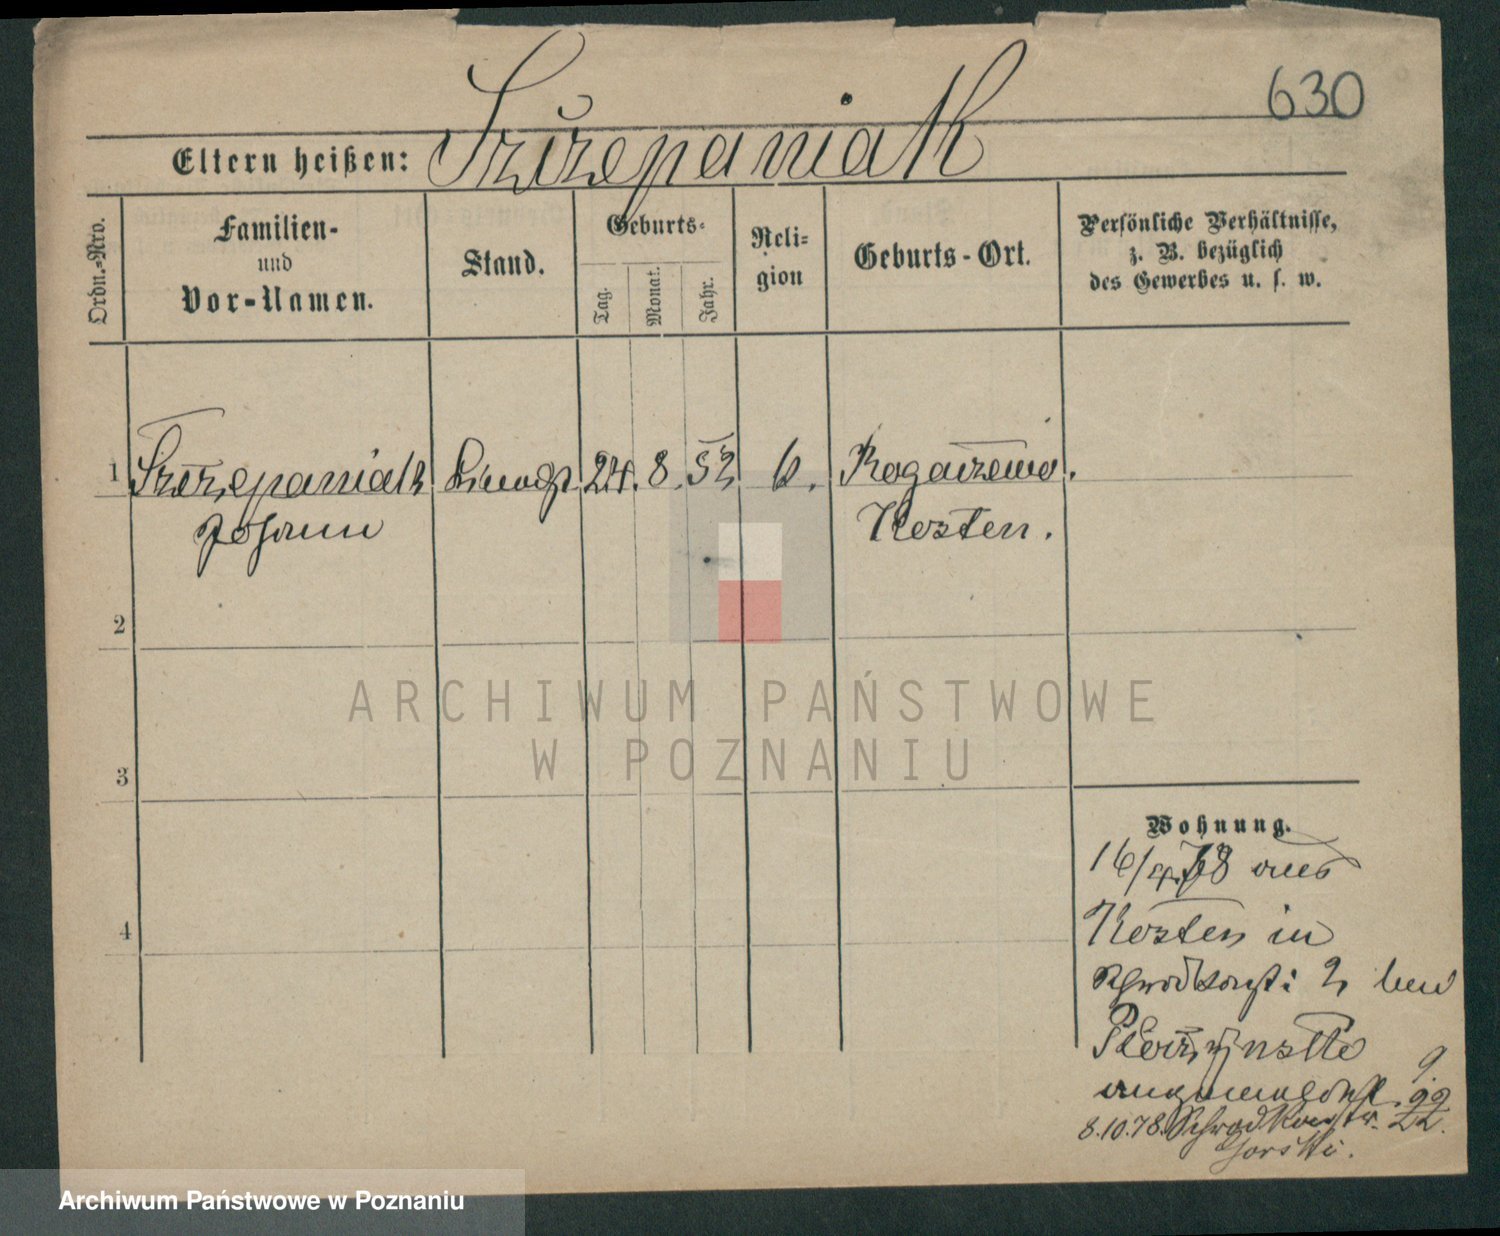 630
Eltern heißen: Szczepaniak
Ordn.-Nro.
Familien-
und
Vor-Namen.
Stand.
Geburts-
Tag.
Monat.
Jahr.
Reli-
gion
Geburts-Ort.
Persönliche Verhältnisse,
z. B. bezüglich
des Gewerbes u. s. w.
1 Szczepaniak 24. 8. 52 k.
Johann Kosten.
2
3
4
Wohnung.
16/4.78 aus
Kosten in
2 bei
angemeldet. 9.
8.10.78. 22.
Gorski.
ARCHIWUM PAŃSTWOWE
W POZNANIU
Archiwum Państwowe w Poznaniu